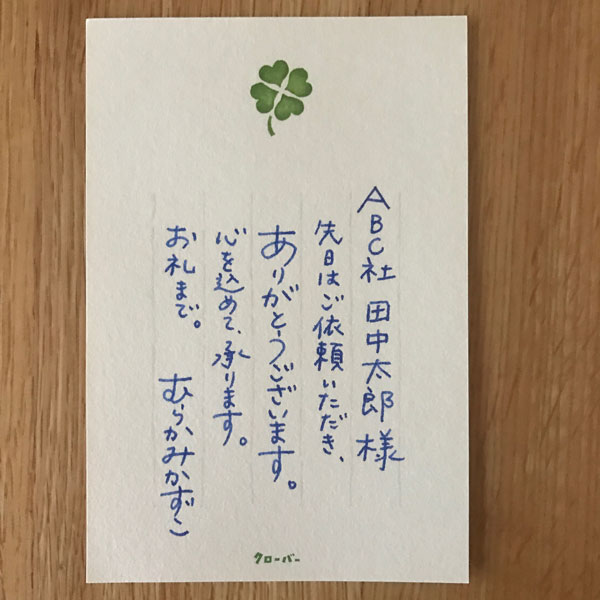 ABC社 田中太郎 様
先日はご依頼いただき、
ありがとうございます。
心を込めて、承ります。
お礼まで。 むらかみかずこ
クローバー